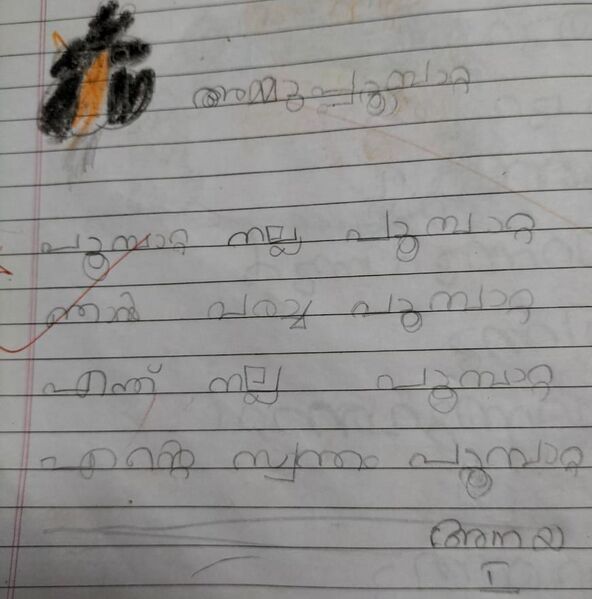 അമ്മുപൂമ്പാറ്റ
പൂമ്പാറ്റ നല്ല പൂമ്പാറ്റ
ഞാൻ വരച്ച പൂമ്പാറ്റ
എന്ത് നല്ല പൂമ്പാറ്റ
എന്റെ സ്വന്തം പൂമ്പാറ്റ
I